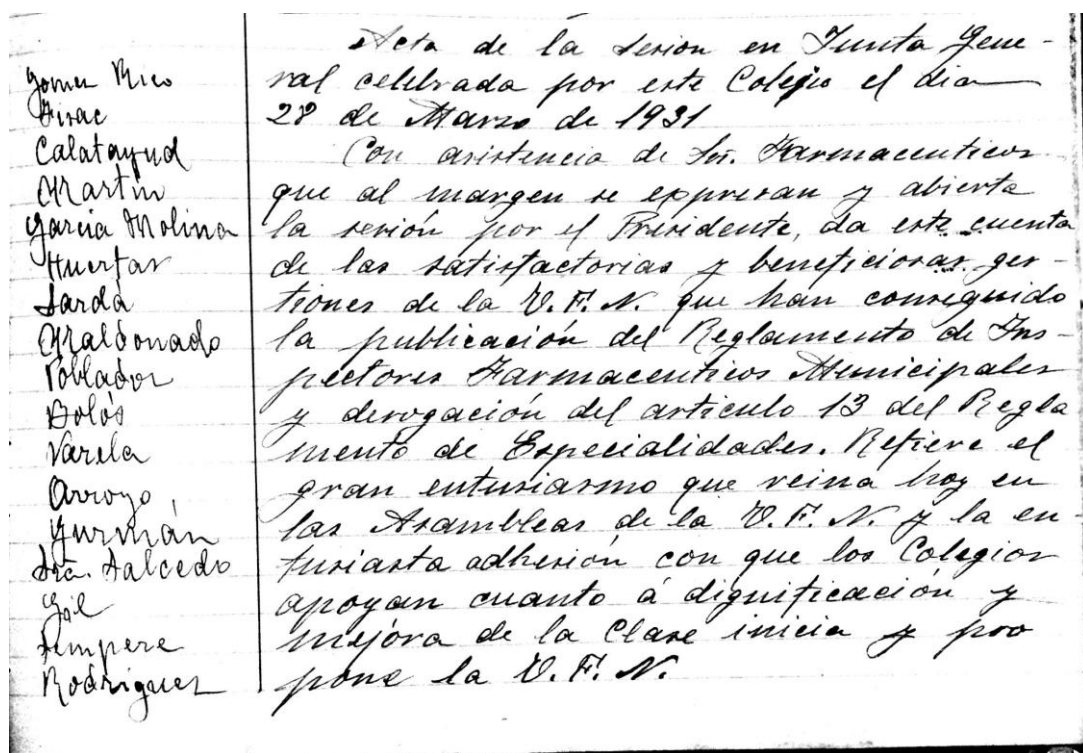 Gomez Rico
Tirac
Calatayud
Martín
Garcia Molina
Huertas
Sardá
Maldonado
Poblador
Bolós
Varela
Arroyo,
Guzmán
Sra. Salcedo
Gil
Sempere
Rodriguez
Acta de la sesion en Junta Gene-
ral celebrada por este Colegio el dia
28 de Marzo de 1931
Con asistencia de Srs. Farmaceuticos
que al margen se expresan y abierta
la sesión por el Presidente, da este cuenta
de las satisfactorias y beneficiosas ges-
tiones de la U.F.N. que han conseguido
la publicación del Reglamento de Ins-
pectores Farmaceuticos Municipales
y derogación del articulo 13 del Regla
mento de Especialidades. Refiere el
gran entusiasmo que reina hoy en
las Asambleas de la U.F.N. y la en
tusiasta adhesión con que los Colegios
apoyan cuanto á dignificación y
mejora de la Clase inicia y pro
pone la U.F.N.